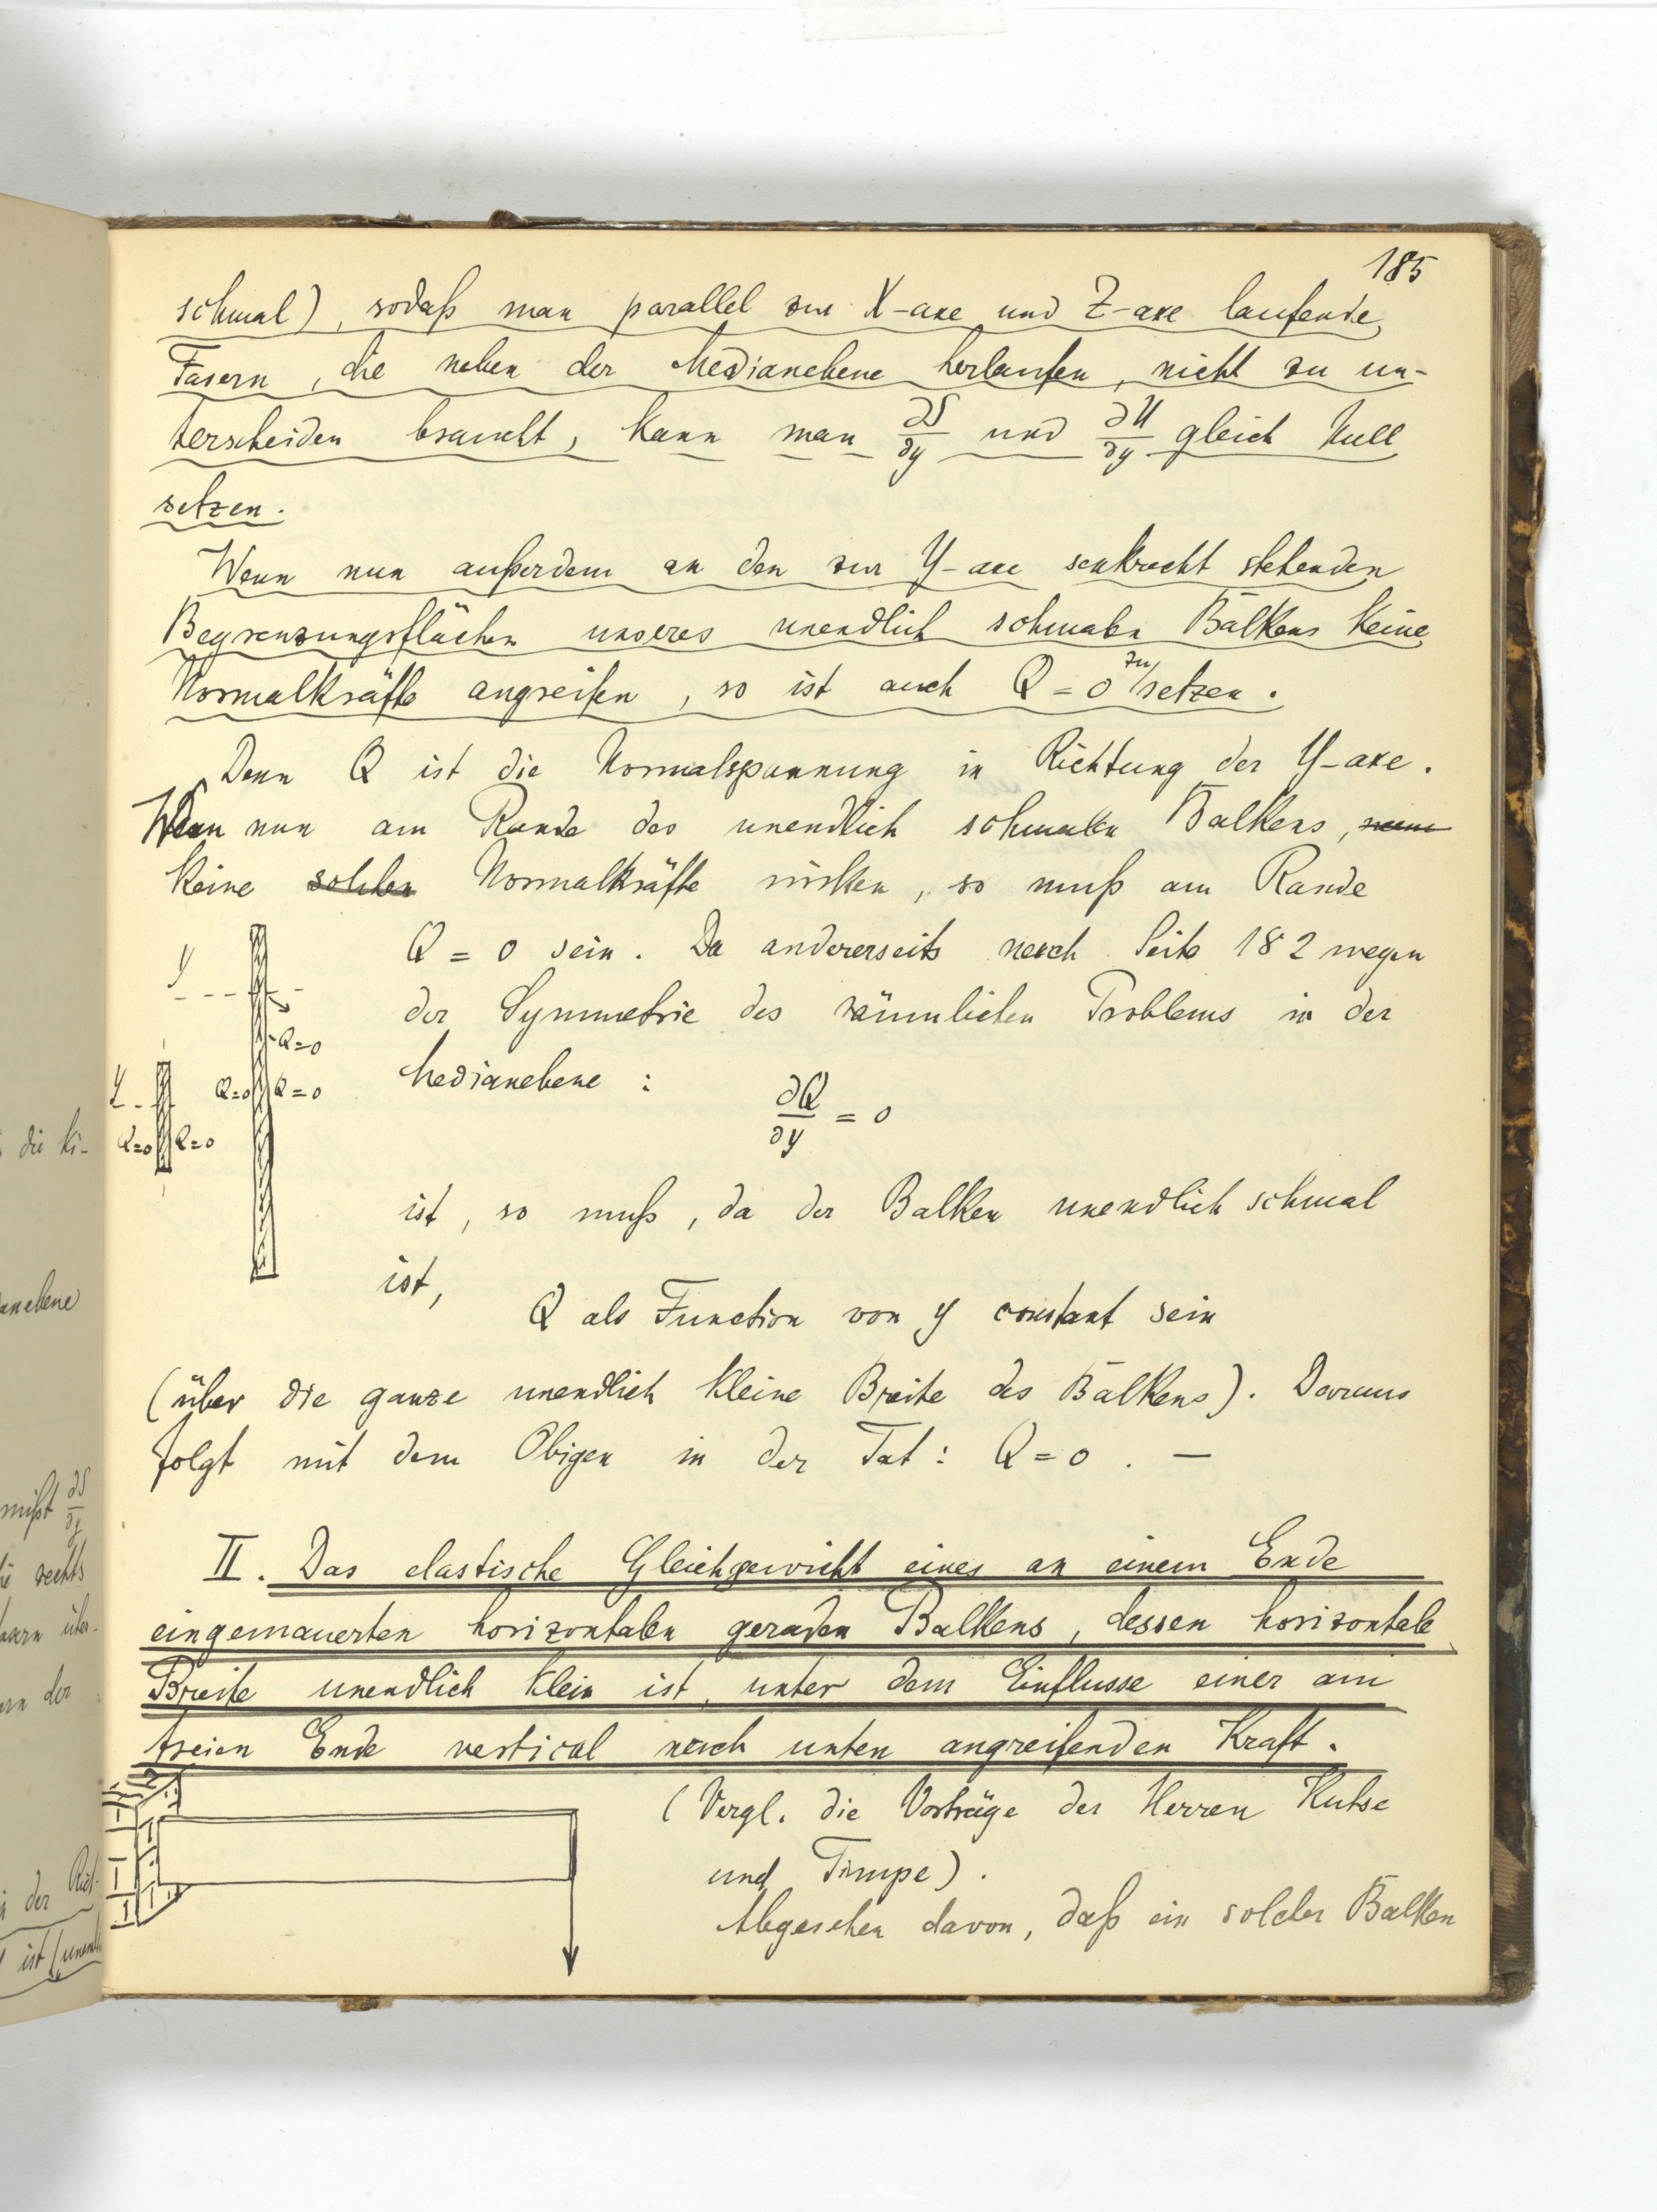 185
schmal), sodaß man parallel zur X-axe und Z-axe laufende
Fasern, die neben der Medianebene herlaufen, nicht zu un-
terscheiden braucht, kann man ∂S/∂y und ∂U/∂y gleich Null
setzen.
Wenn nun außerdem an den zur Y-axe senkrecht stehenden
Begrenzungsflächen unseres unendlich schmalen Balkens keine
Normalkräfte angreifen, so ist auch Q = 0 zu setzen.
Denn Q ist die Normalspannung in Richtung der Y-axe.
Wenn nun am Rande des unendlich schmalen Balkens,
keine solchen Normalkräfte wirken, so muß am Rande
Q = 0 sein. Da andererseits nach Seite 182 wegen
der Symmetrie des räumlichen Problems in der
Medianebene:
∂Q/∂y = 0
ist, so muß, da der Balken unendlich schmal
ist,
Q als Function von y constant sein
(über die ganze unendlich kleine Breite des Balkens). Daraus
folgt mit dem Obigen in der Tat: Q = 0. —
II. Das elastische Gleichgewicht eines an einem Ende
eingemauerten horizontalen geraden Balkens, dessen horizontale
Breite unendlich klein ist, unter dem Einflusse einer am
freien Ende vertical nach unten angreifenden Kraft.
(Vergl. die Vorträge der Herren Kutse
und Timpe).
Abgesehen davon, daß ein solcher Balken
Y
Q=0
Q=0 Q=0
Y
Q=0 Q=0
die
anebene
mißt ∂S/∂y
rechts
über-
der
in der
ist (unendl